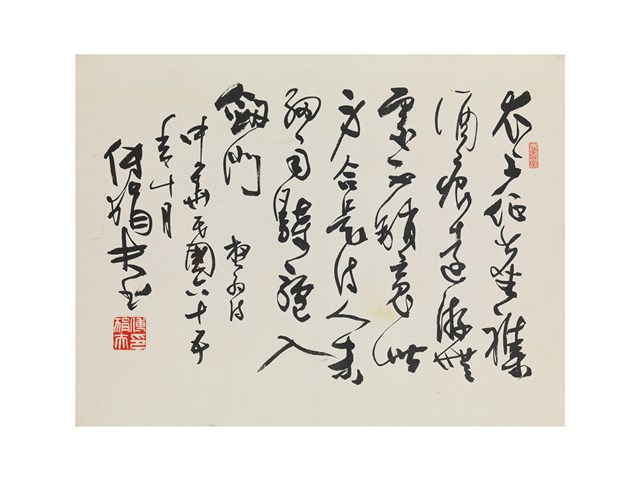 衣上征塵雜
酒痕遠遊無
處不銷魂此
身合是詩人未
細雨騎驢入
劍門 放翁詩
中華民國六十年
十月
傅狷夫書
傅印狷夫